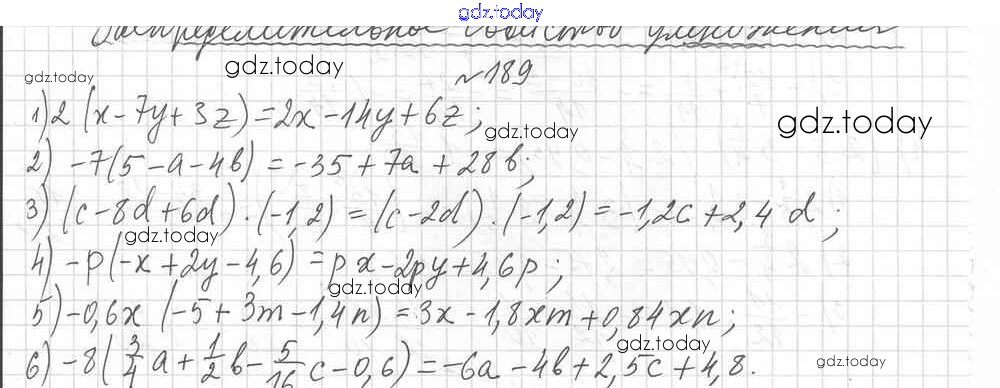 gdz.today
Распределительное свойство умножения
gdz.today gdz.today №189
1) 2 (x - 7y + 3z) = 2x - 14y + 6z; gdz.today gdz.today
2) -7(5 - a - 4b) = -35 + 7a + 28b;
3) (c - 8d + 6d) · (-1,2) = (c - 2d) · (-1,2) = -1,2c + 2,4d;
gdz.today
4) -p(-x + 2y - 4,6) = px - 2py + 4,6p;
gdz.today
5) -0,6x (-5 + 3m - 1,4n) = 3x - 1,8xm + 0,84xn;
gdz.today
6) -8(3/4 a + 1/2 b - 5/16 c - 0,6) = -6a - 4b + 2,5c + 4,8. gdz.today